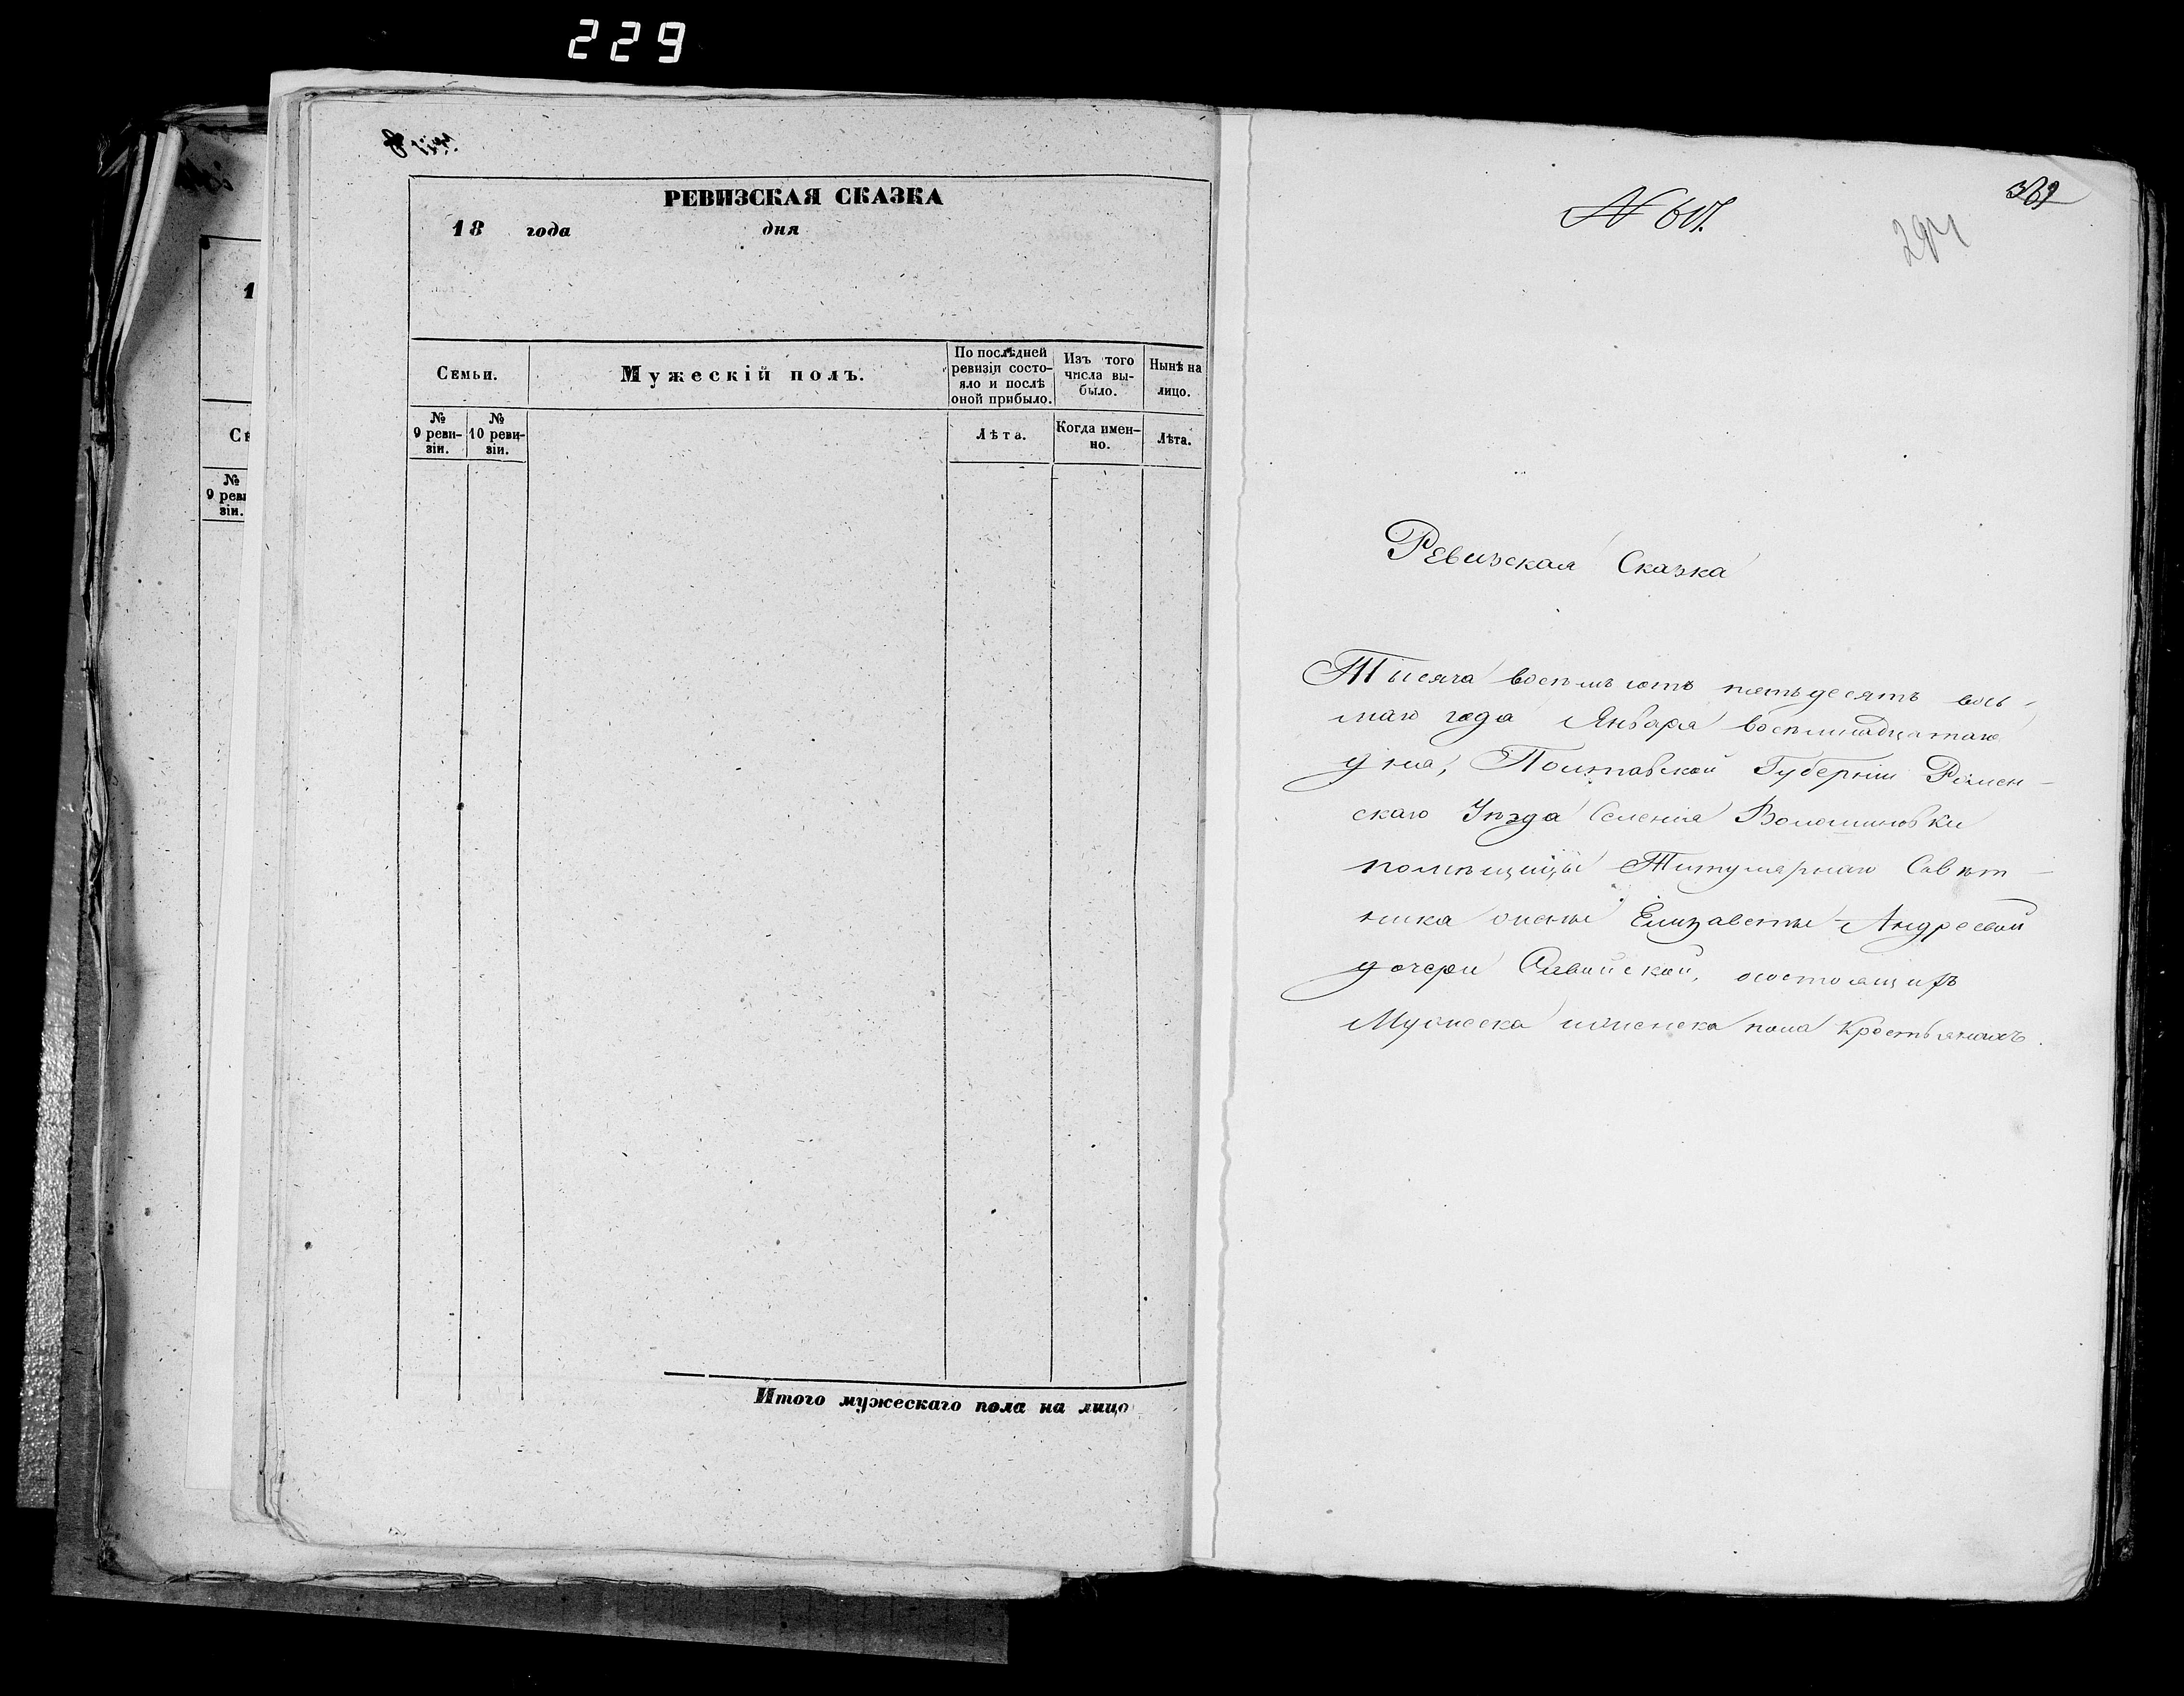 229
РЕВИЗСКАЯ СКАЗКА
18 года дня
Семьи.
Мужескій полъ.
По послѣдней
ревизіи состо-
яло и послѣ
оной прибыло.
Изъ того
числа вы-
было.
Нынѣ на
лицо.
№
9 реви-
зіи.
№
10 реви-
зіи.
Лѣта.
Когда имен-
но.
Лѣта.
Итого мужескаго пола на лицо
1
№
9 реви
зіи.
№ 617.
Ревизская Сказка
Тысяча восемьсотъ пятьдесятъ вось-
маго года Января восемнадцатаго
дня, Полтавской Губерніи Ромен-
скаго Уѣзда Селенія Волошиновки
помѣщицы Титулярнаго Совѣт-
ника жены Елизаветы Андреевой
дочери состоящихъ
Мужеска женска пола Крестьянахъ.